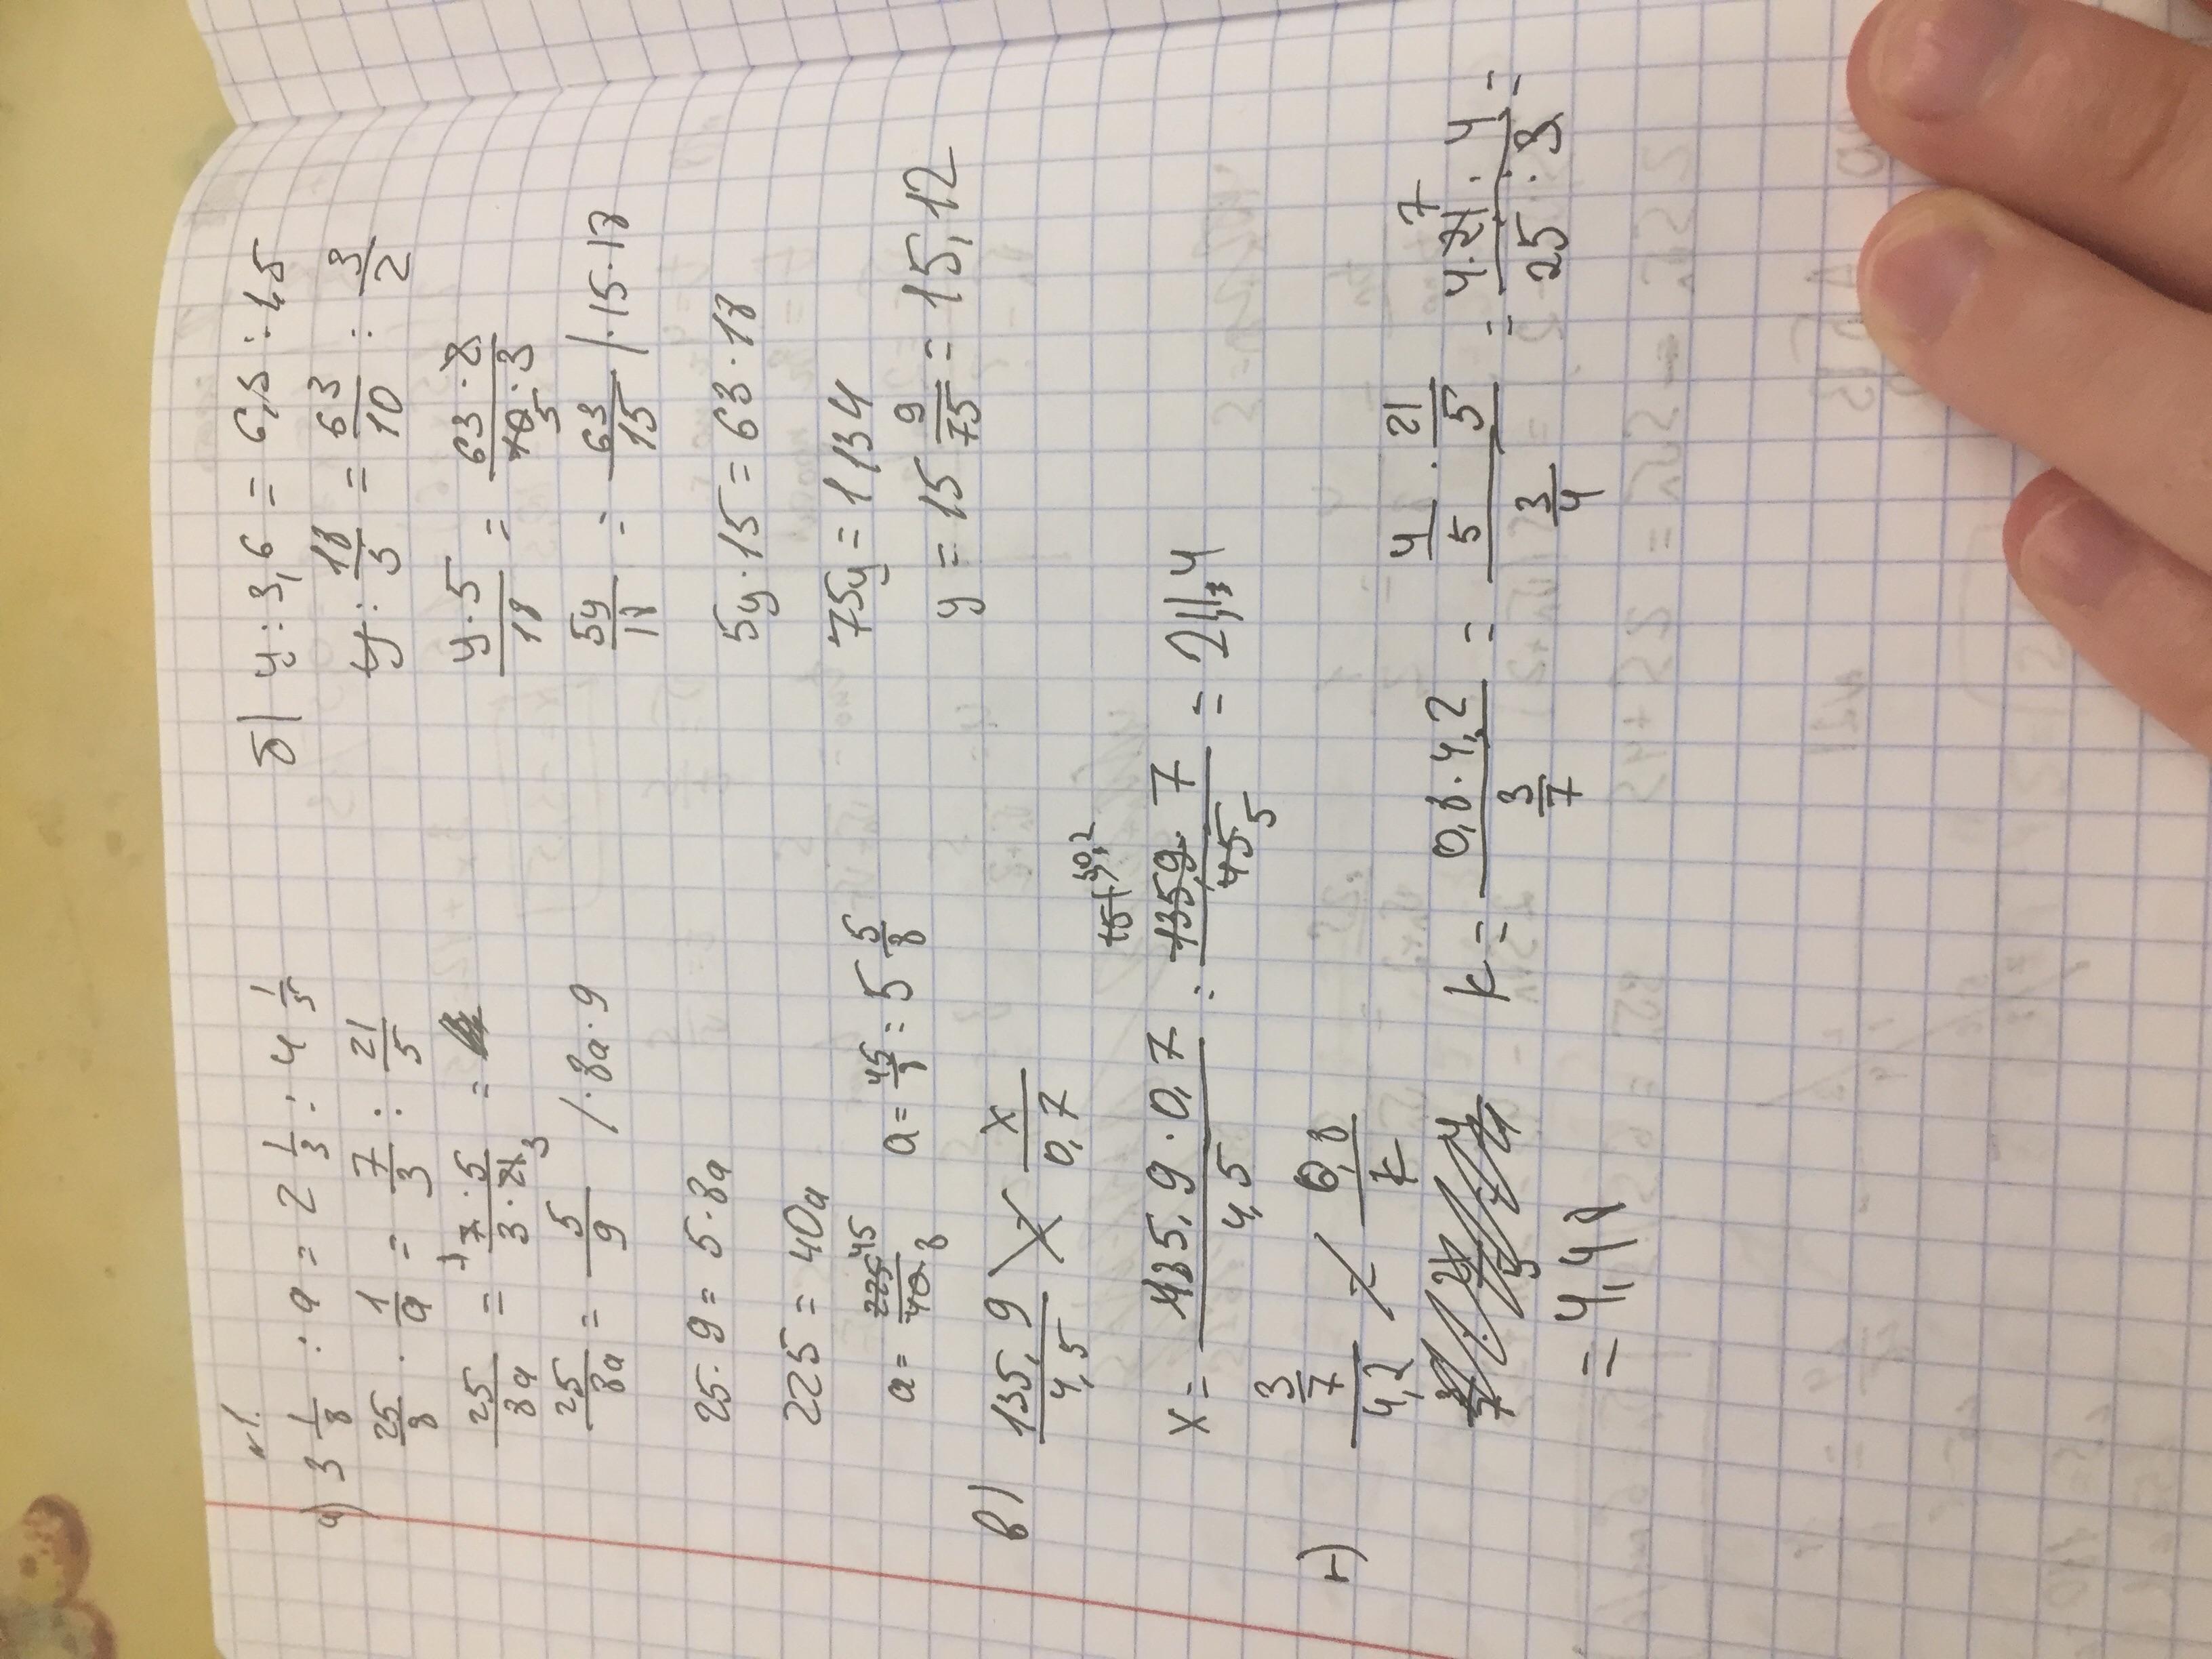 №1.
а) 3 1/8 : a = 2 1/3 : 4 1/5
25/8 · 1/a = 7/3 : 21/5
25/8a = 7·5/3·21 3 =
25/8a = 5/9 /·8a·9
25·9 = 5·8a
225 = 40a
a = 225 45/40 8 a = 45/8 = 5 5/8
б) y : 3,6 = 6,3 : 1,5
y : 18/5 = 63/10 : 3/2
y·5/18 = 63·2/10·3 5
5y/18 = 63/15 /·15·18
5y·15 = 63·18
75y = 1134
y = 15 9/75 = 15,12
в) 135,9/4,5 x/0,7
x = 135,9·0,7/4,5 = 1359·7/45 5 = 21,14
30,2
г) 3/7/4,2 0,8/k k = 0,8·4,2/3/7 = 4/5·21/5/3/4 = 4·21 7·4/25·3 =
= 4,48